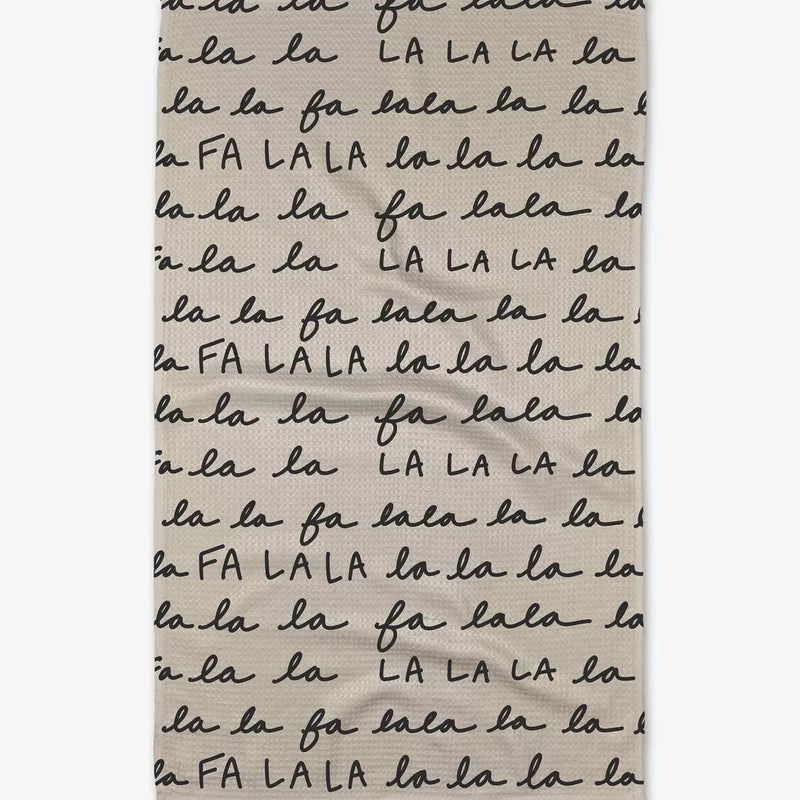 la la fa lala la la
fa la la LA LA LA la
la la fa lala la la
la FA LA LA la la la la
la la la fa lala la
fa la la LA LA LA la
la la fa lala la la
la FA LA LA la la la la
la la la fa lala la
fa la la LA LA LA la
la la fa lala la la
la FA LA LA la la la la
la la la fa lala la
fa la la LA LA LA la
la la fa lala la la
la FA LA LA la la la la